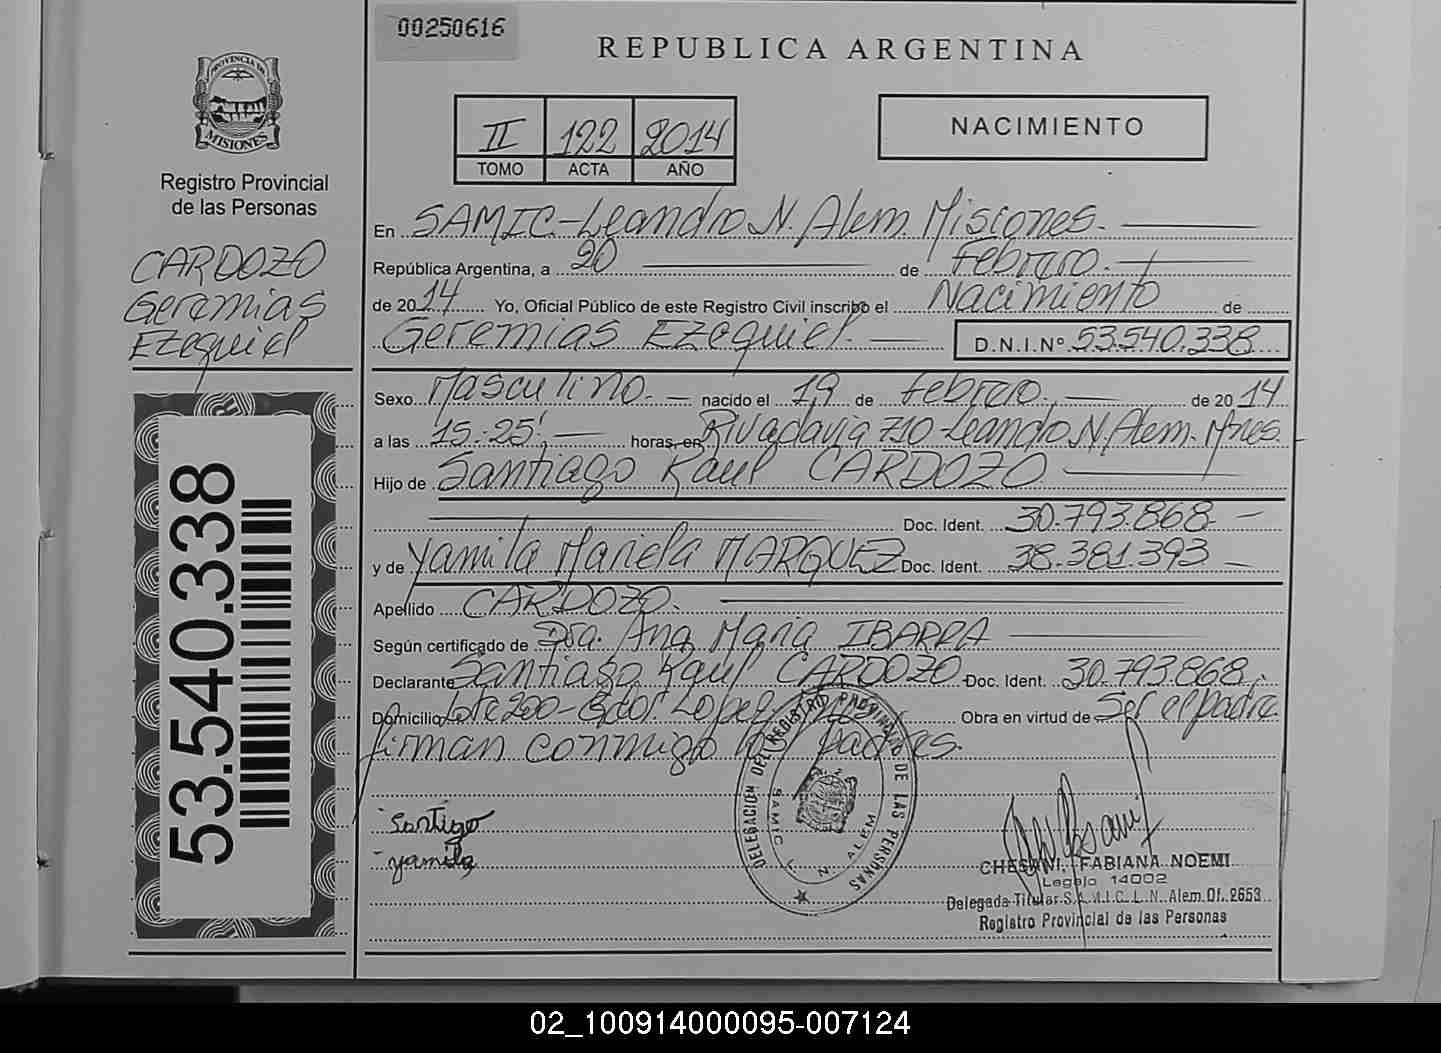 00250616
REPUBLICA ARGENTINA
PROVINCIA DE
MISIONES
Registro Provincial
de las Personas
II 122 2014
TOMO ACTA AÑO
NACIMIENTO
CARDOZO
Geremias
Ezequiel
En SAMIC-Leandro N. Alem. Misiones.
República Argentina, a 20 de Febrero.
de 2014 Yo, Oficial Público de este Registro Civil inscribo el Nacimiento de
Geremias Ezequiel. D.N.I.Nº 53.540.338
Sexo Masculino. nacido el 19 de febrero. de 2014
a las 15:25', horas, en Rivadavia 710-Leandro N. Alem. Mnes.
Hijo de Santiago Raul CARDOZO
Doc. Ident. 30.793.868
y de Yamila Mariela MARQUEZ Doc. Ident. 38.381.393
Apellido CARDOZO.
Según certificado de Dra. Ana Maria IBARRA
Declarante Santiago Raul CARDOZO Doc. Ident. 30.793.868.
Domicilio Lote 200- Gdor. Lopez Obra en virtud de Ser el padre
firman conmigo los padres.
53.540.338
Santigo
yamila
DELEGACION DEL REGISTRO PROVINCIAL DE LAS PERSONAS
SAMIC L. N. ALEM
CHESANI, FABIANA NOEMI
Legajo 14002
Delegada Titular S.A.M.I.C. L. N. Alem Of. 2653
Registro Provincial de las Personas
02_100914000095-007124